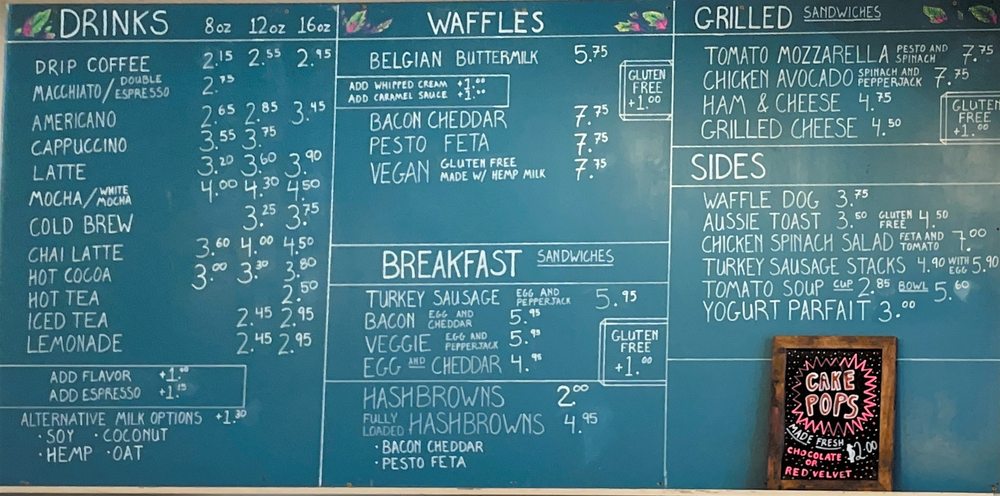 DRINKS 8oz 12oz 16oz
DRIP COFFEE 2.15 2.55 2.95
MACCHIATO/DOUBLE ESPRESSO 2.75
AMERICANO 2.65 2.85 3.45
CAPPUCCINO 3.55 3.75
LATTE 3.20 3.60 3.90
MOCHA/WHITE MOCHA 4.00 4.30 4.50
COLD BREW 3.25 3.75
CHAI LATTE 3.60 4.00 4.50
HOT COCOA 3.00 3.30 3.80
HOT TEA 2.50
ICED TEA 2.45 2.95
LEMONADE 2.45 2.95
ADD FLAVOR +1.00
ADD ESPRESSO +1.15
ALTERNATIVE MILK OPTIONS +1.30
·SOY ·COCONUT
·HEMP ·OAT
WAFFLES
BELGIAN BUTTERMILK 5.75
ADD WHIPPED CREAM +1.00
ADD CARAMEL SAUCE +1.00
GLUTEN
FREE
+1.00
BACON CHEDDAR 7.75
PESTO FETA 7.75
VEGAN GLUTEN FREE MADE W/ HEMP MILK 7.75
BREAKFAST SANDWICHES
TURKEY SAUSAGE EGG AND PEPPERJACK 5.95
BACON EGG AND CHEDDAR 5.95
VEGGIE EGG AND PEPPERJACK 5.95
EGG AND CHEDDAR 4.95
GLUTEN
FREE
+1.00
HASHBROWNS 2.00
FULLY LOADED HASHBROWNS 4.95
·BACON CHEDDAR
·PESTO FETA
GRILLED SANDWICHES
TOMATO MOZZARELLA PESTO AND SPINACH 7.75
CHICKEN AVOCADO SPINACH AND PEPPERJACK 7.75
HAM & CHEESE 4.75
GRILLED CHEESE 4.50
GLUTEN
FREE
+1.00
SIDES
WAFFLE DOG 3.75
AUSSIE TOAST 3.50 GLUTEN FREE 4.50
CHICKEN SPINACH SALAD FETA AND TOMATO 7.00
TURKEY SAUSAGE STACKS 4.90 WITH EGG 5.90
TOMATO SOUP CUP 2.85 BOWL 5.60
YOGURT PARFAIT 3.00
CAKE
POPS
MADE FRESH
$2.00
CHOCOLATE
OR
RED VELVET